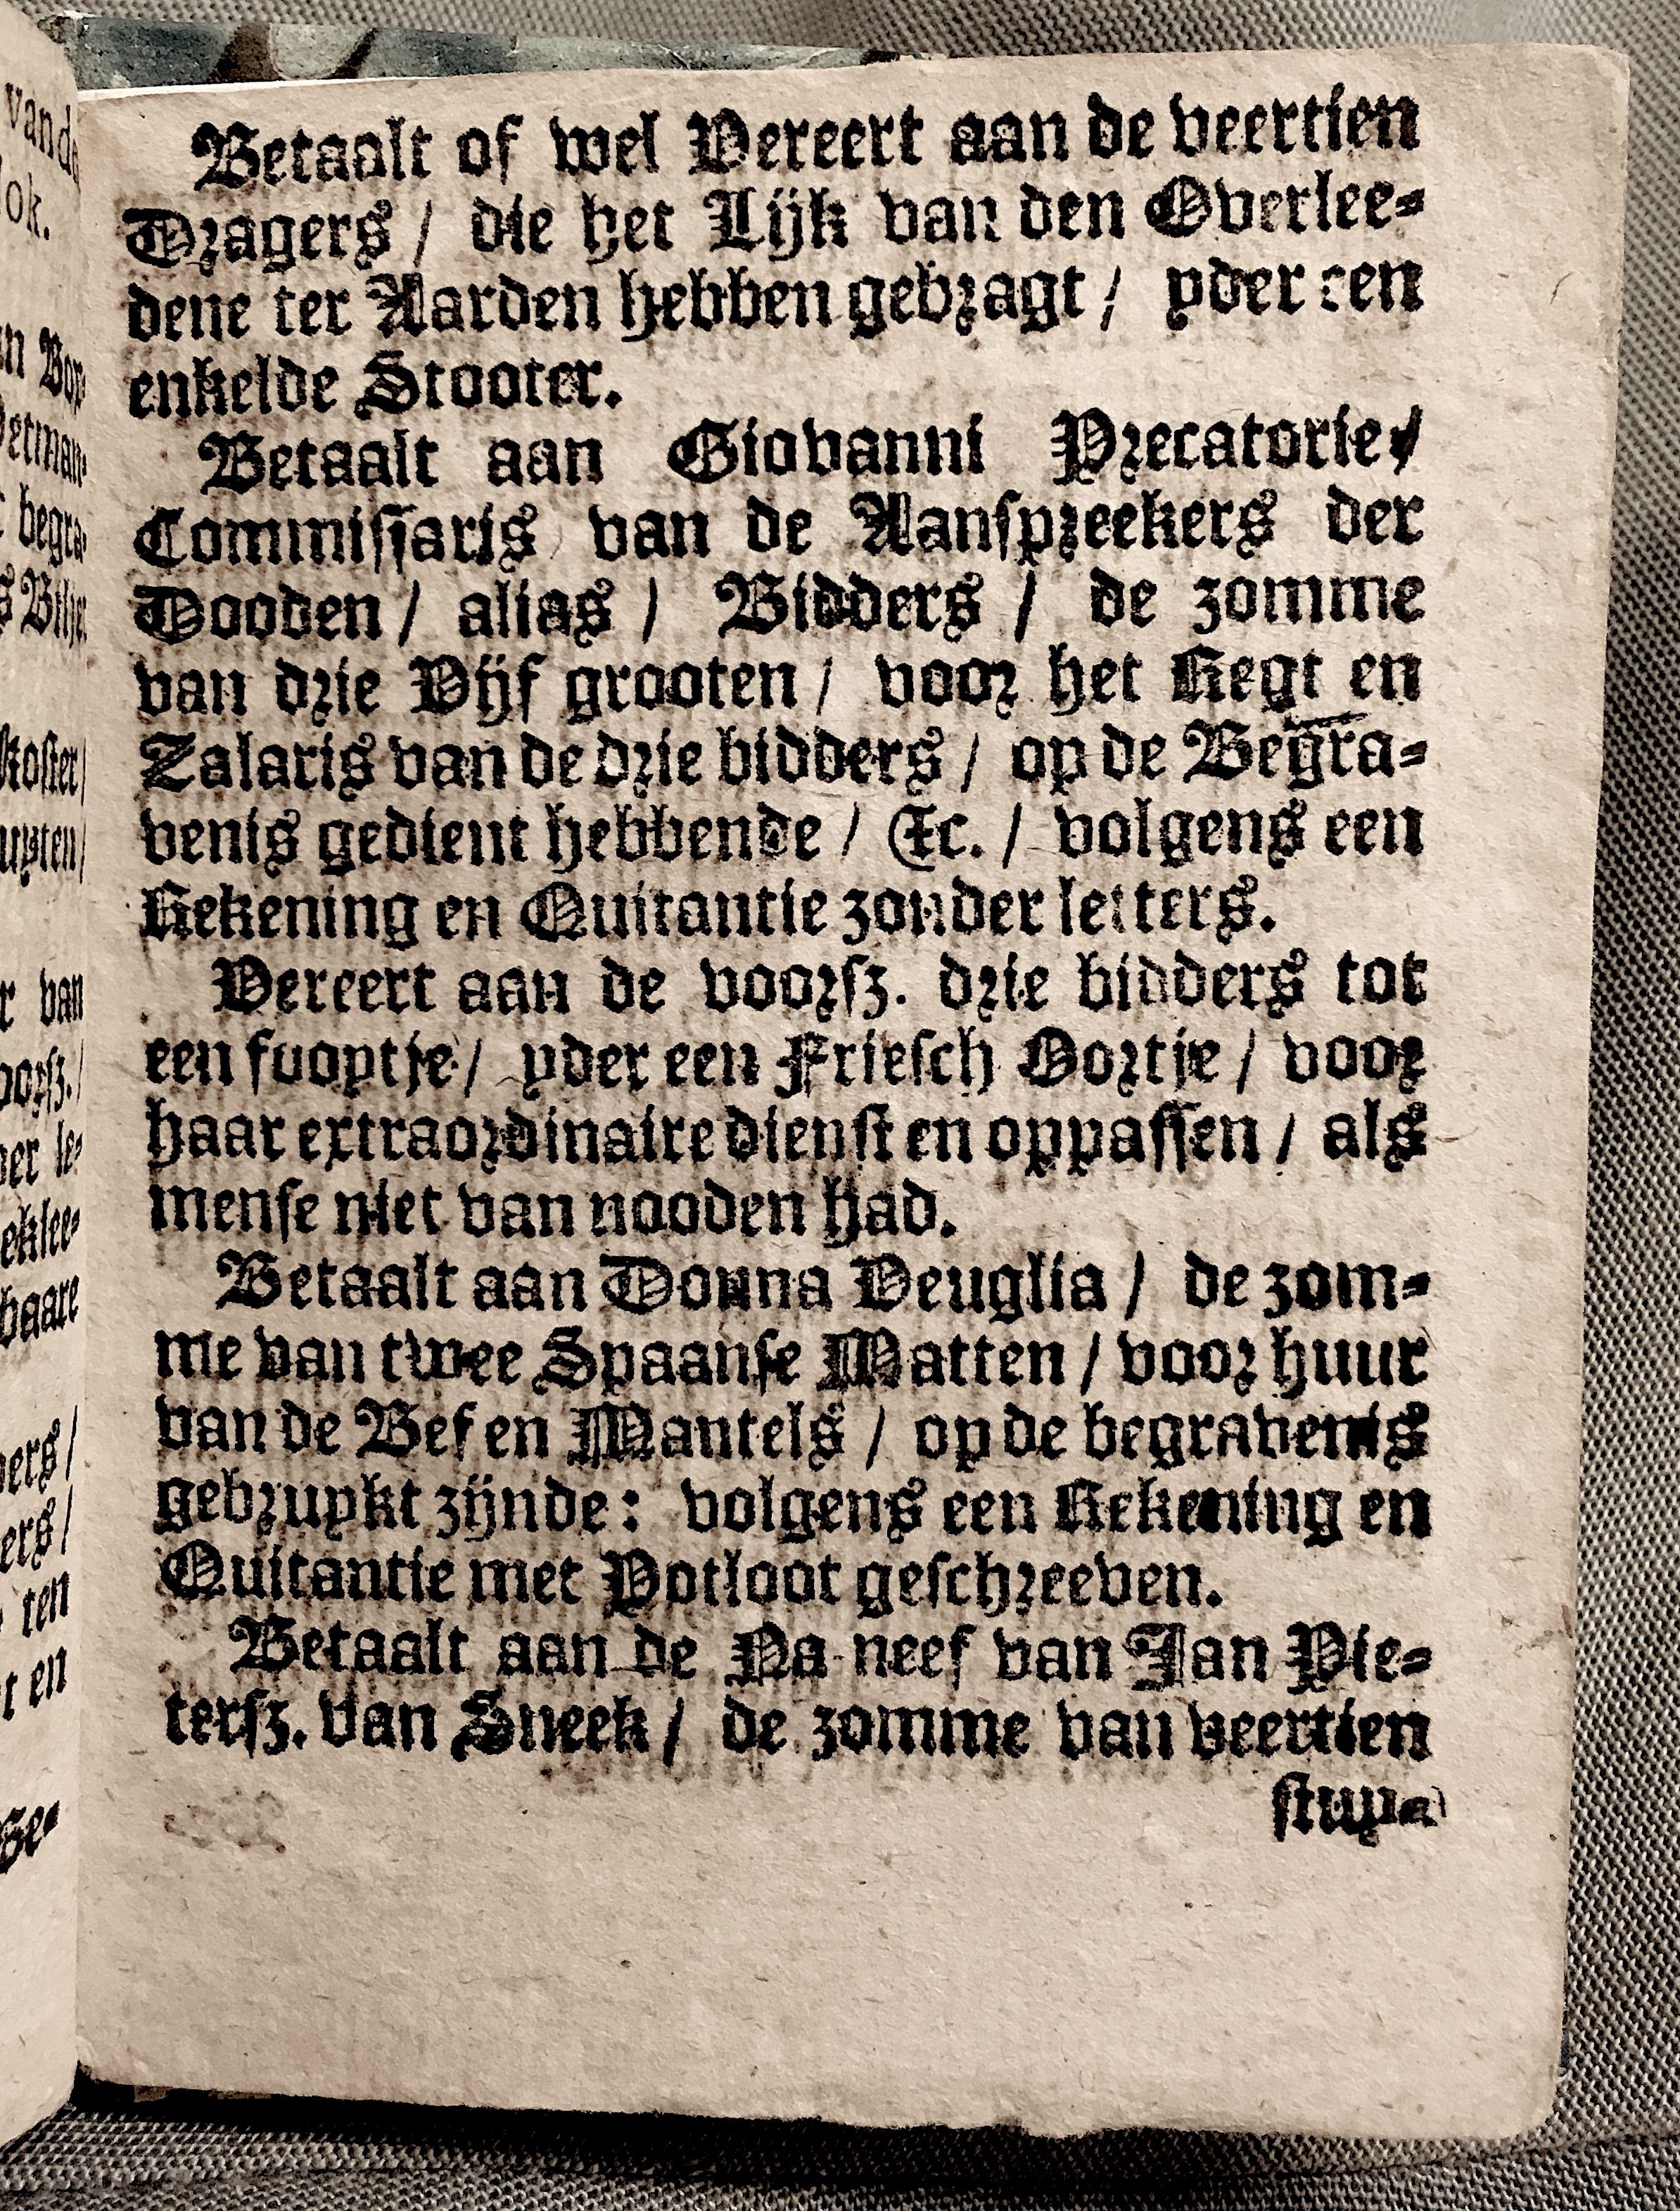 Betaalt of wel Vereert aan de veertien
Dragers / die het Lijk van den Overlee-
dene ter Aarden hebben gebragt / yder een
enkelde Stooter.
Betaalt aan Giovanni Precatorie /
Commissaris van de Aanspreekers der
Dooden / alias / Bidders / de zomme
van drie Vijf grooten / voor het Regt en
Zalaris van de drie bidders / op de Begra-
venis gedient hebbende / &c. / volgens een
Rekening en Quitantie zonder letters.
Vereert aan de voorsz. drie bidders tot
een fooytje / yder een Friesch Oortje / voor
haar extraordinaire dienst en oppassen / als
mense niet van nooden had.
Betaalt aan Donna Veuglia / de zom-
me van twee Spaanse Matten / voor huur
van de Bef en Mantels / op de begravenis
gebruykt zijnde: volgens een Rekening en
Quitantie met Potloot geschreeven.
Betaalt aan de Na neef van Jan Pie-
tersz. van Sneek / de zomme van veertien
stuy-
vande
ok.
an Bop-
begra-
Koster /
r van
oorsz. /
per le-
eklee-
baare
pers /
ers /
ten
en
Ge-